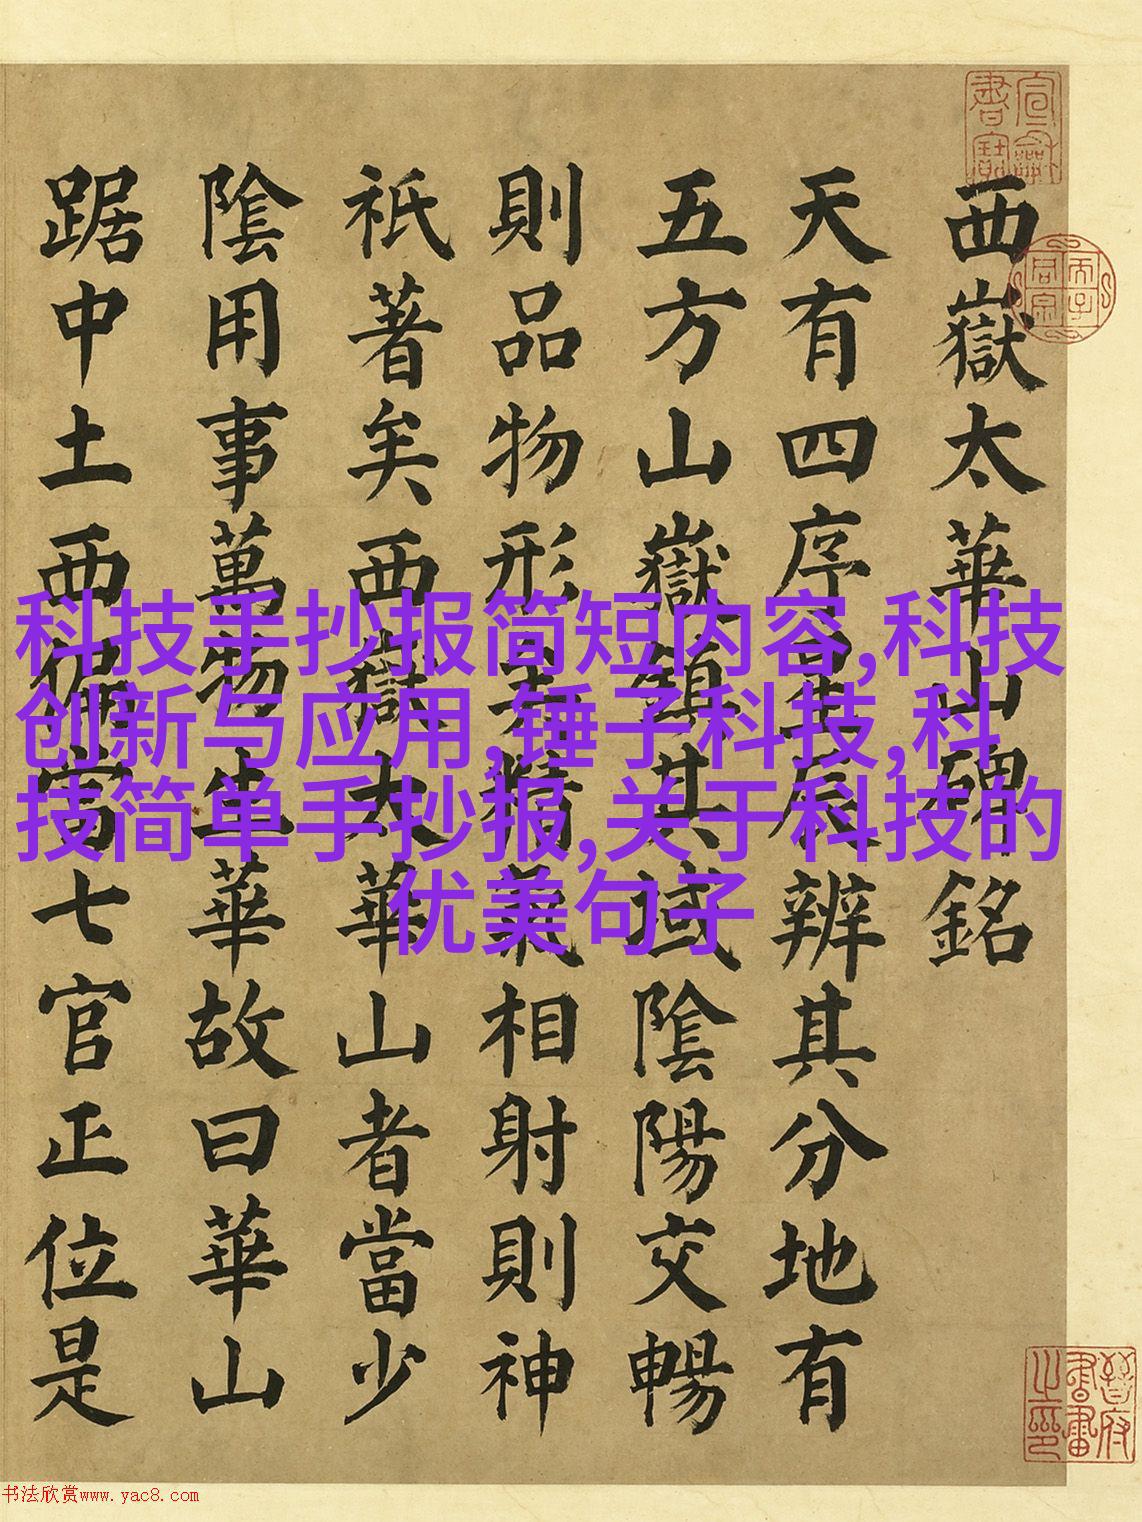 西嶽太華山碑銘
天有四序星辰辨其分地有
五方山嶽鎮其域陰陽交暢
則品物形精氣相射則神
祇著矣西嶽太華山者當少
陰用事萬物生華故曰華山
踞中土西偏七官正位是
科技手抄报简短内容,科技
创新与应用,锤子科技,科
技简单手抄报,关于科技的
优美句子
晉府書畫之印
书法欣赏www.yac8.com